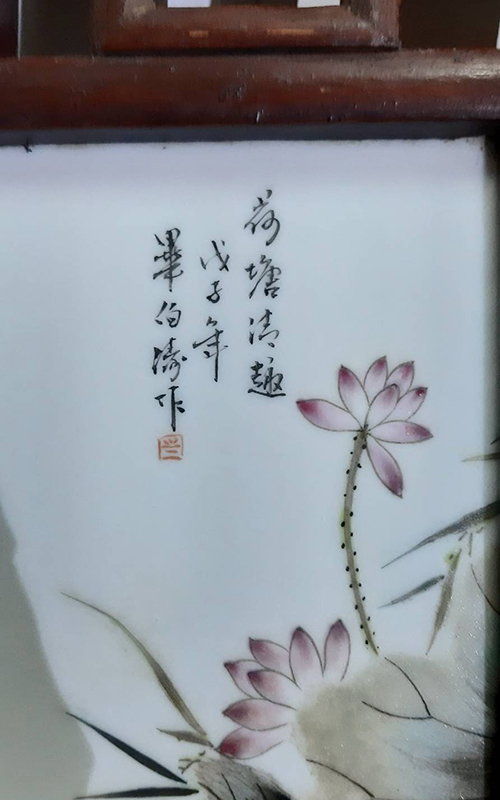 荷塘清趣
戊子年
畢伯濤作